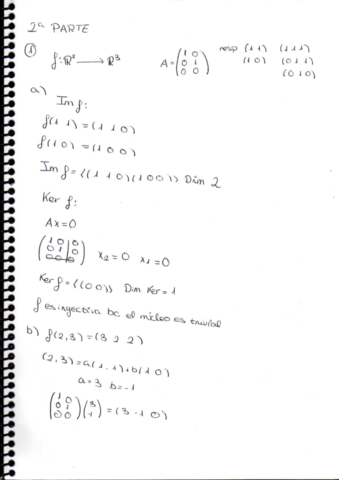 2ª PARTE
① f: ℝ² ⟶ ℝ³ A = (1 0 / 0 1 / 0 0) resp (1 1) (1 1 1)
(1 0) (0 1 1)
(0 1 0)
a) Im f:
f(1 1) = (1 1 0)
f(1 0) = (1 0 0)
Im f = ⟨(1 1 0)(1 0 0)⟩ Dim 2
Ker f:
Ax = 0
(1 0 | 0 / 0 1 | 0 / 0 0 0) x₂ = 0 x₁ = 0
Ker f = ⟨(0 0)⟩ Dim Ker = 1
f es inyectiva bc el núcleo es trivial
b) f(2,3) = (3 2 2)
(2,3) = a(1,1) + b(1 0)
a = 3 b = -1
(1 0 / 0 1 / 0 0) (3 / -1) = (3 -1 0)